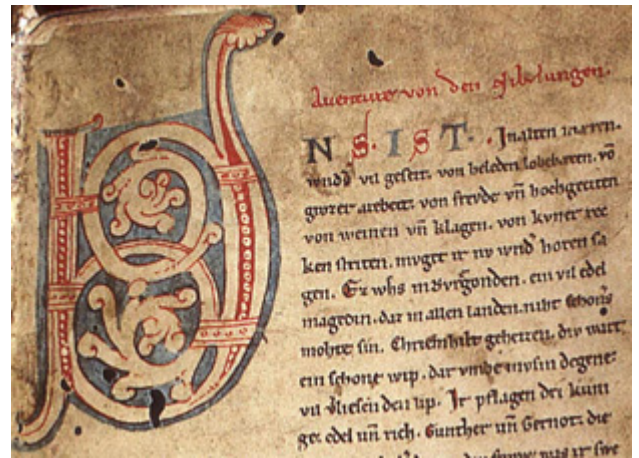 Auenture von den Nibelungen.
U NS. IST. In alten mæren.
wndˀs vil geseit. von heleden lobebæren. võ
grozer arebeit. von frevde vñ hochgeciten
von weinen vñ klagen. von kvner rec
ken striten. mvget ir nv wndˀ horen sa
gen. Ez whs in Bvrgonden. ein vil edel
magedin. daz in allen landen. niht schonˀs
mohte sin. Chriemhilt geheizen. div wart
ein schone wip. dar vmbe mvsin degene
vil vliesen den lip. Ir pflagen dri kuni
ge. edel uñ rich. Gunther uñ Gernot. die